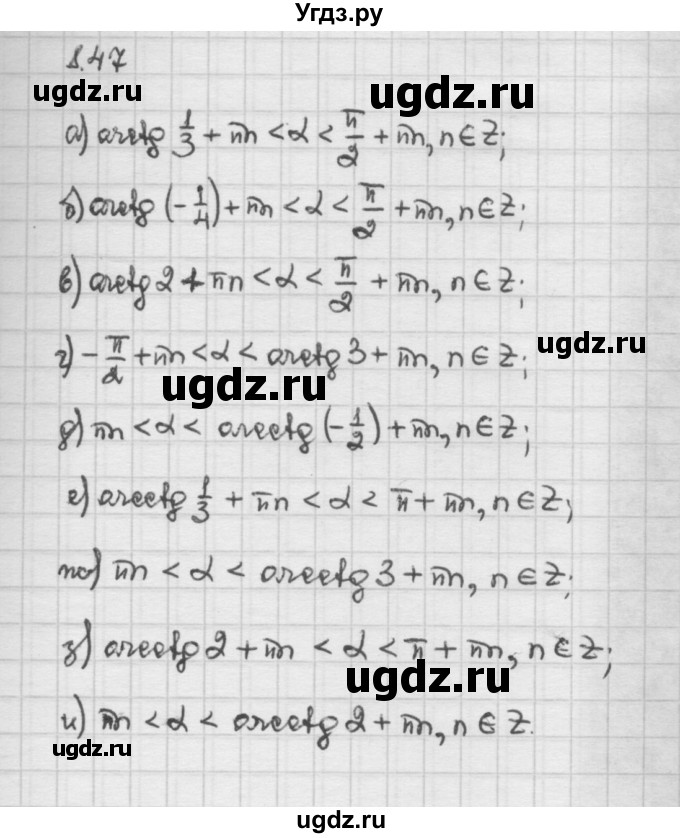 Угдз.ру
8.47
ugdz.ru
ugdz.ru
а) arctg 1/3 + πn < α < π/2 + πn, n ∈ Z;
б) arctg (-1/4) + πn < α < π/2 + πn, n ∈ Z;
в) arctg 2 + πn < α < π/2 + πn, n ∈ Z;
ugdz.ru
г) -π/2 + πn < α < arctg 3 + πn, n ∈ Z;
ugdz.ru
д) πn < α < arcctg (-1/2) + πn, n ∈ Z;
е) arcctg 1/3 + πn < α < π + πn, n ∈ Z;
ж) πn < α < arcctg 3 + πn, n ∈ Z;
з) arcctg 2 + πn < α < π + πn, n ∈ Z;
ugdz.ru
и) πn < α < arcctg 2 + πn, n ∈ Z.
ugdz.ru
ugdz.ru